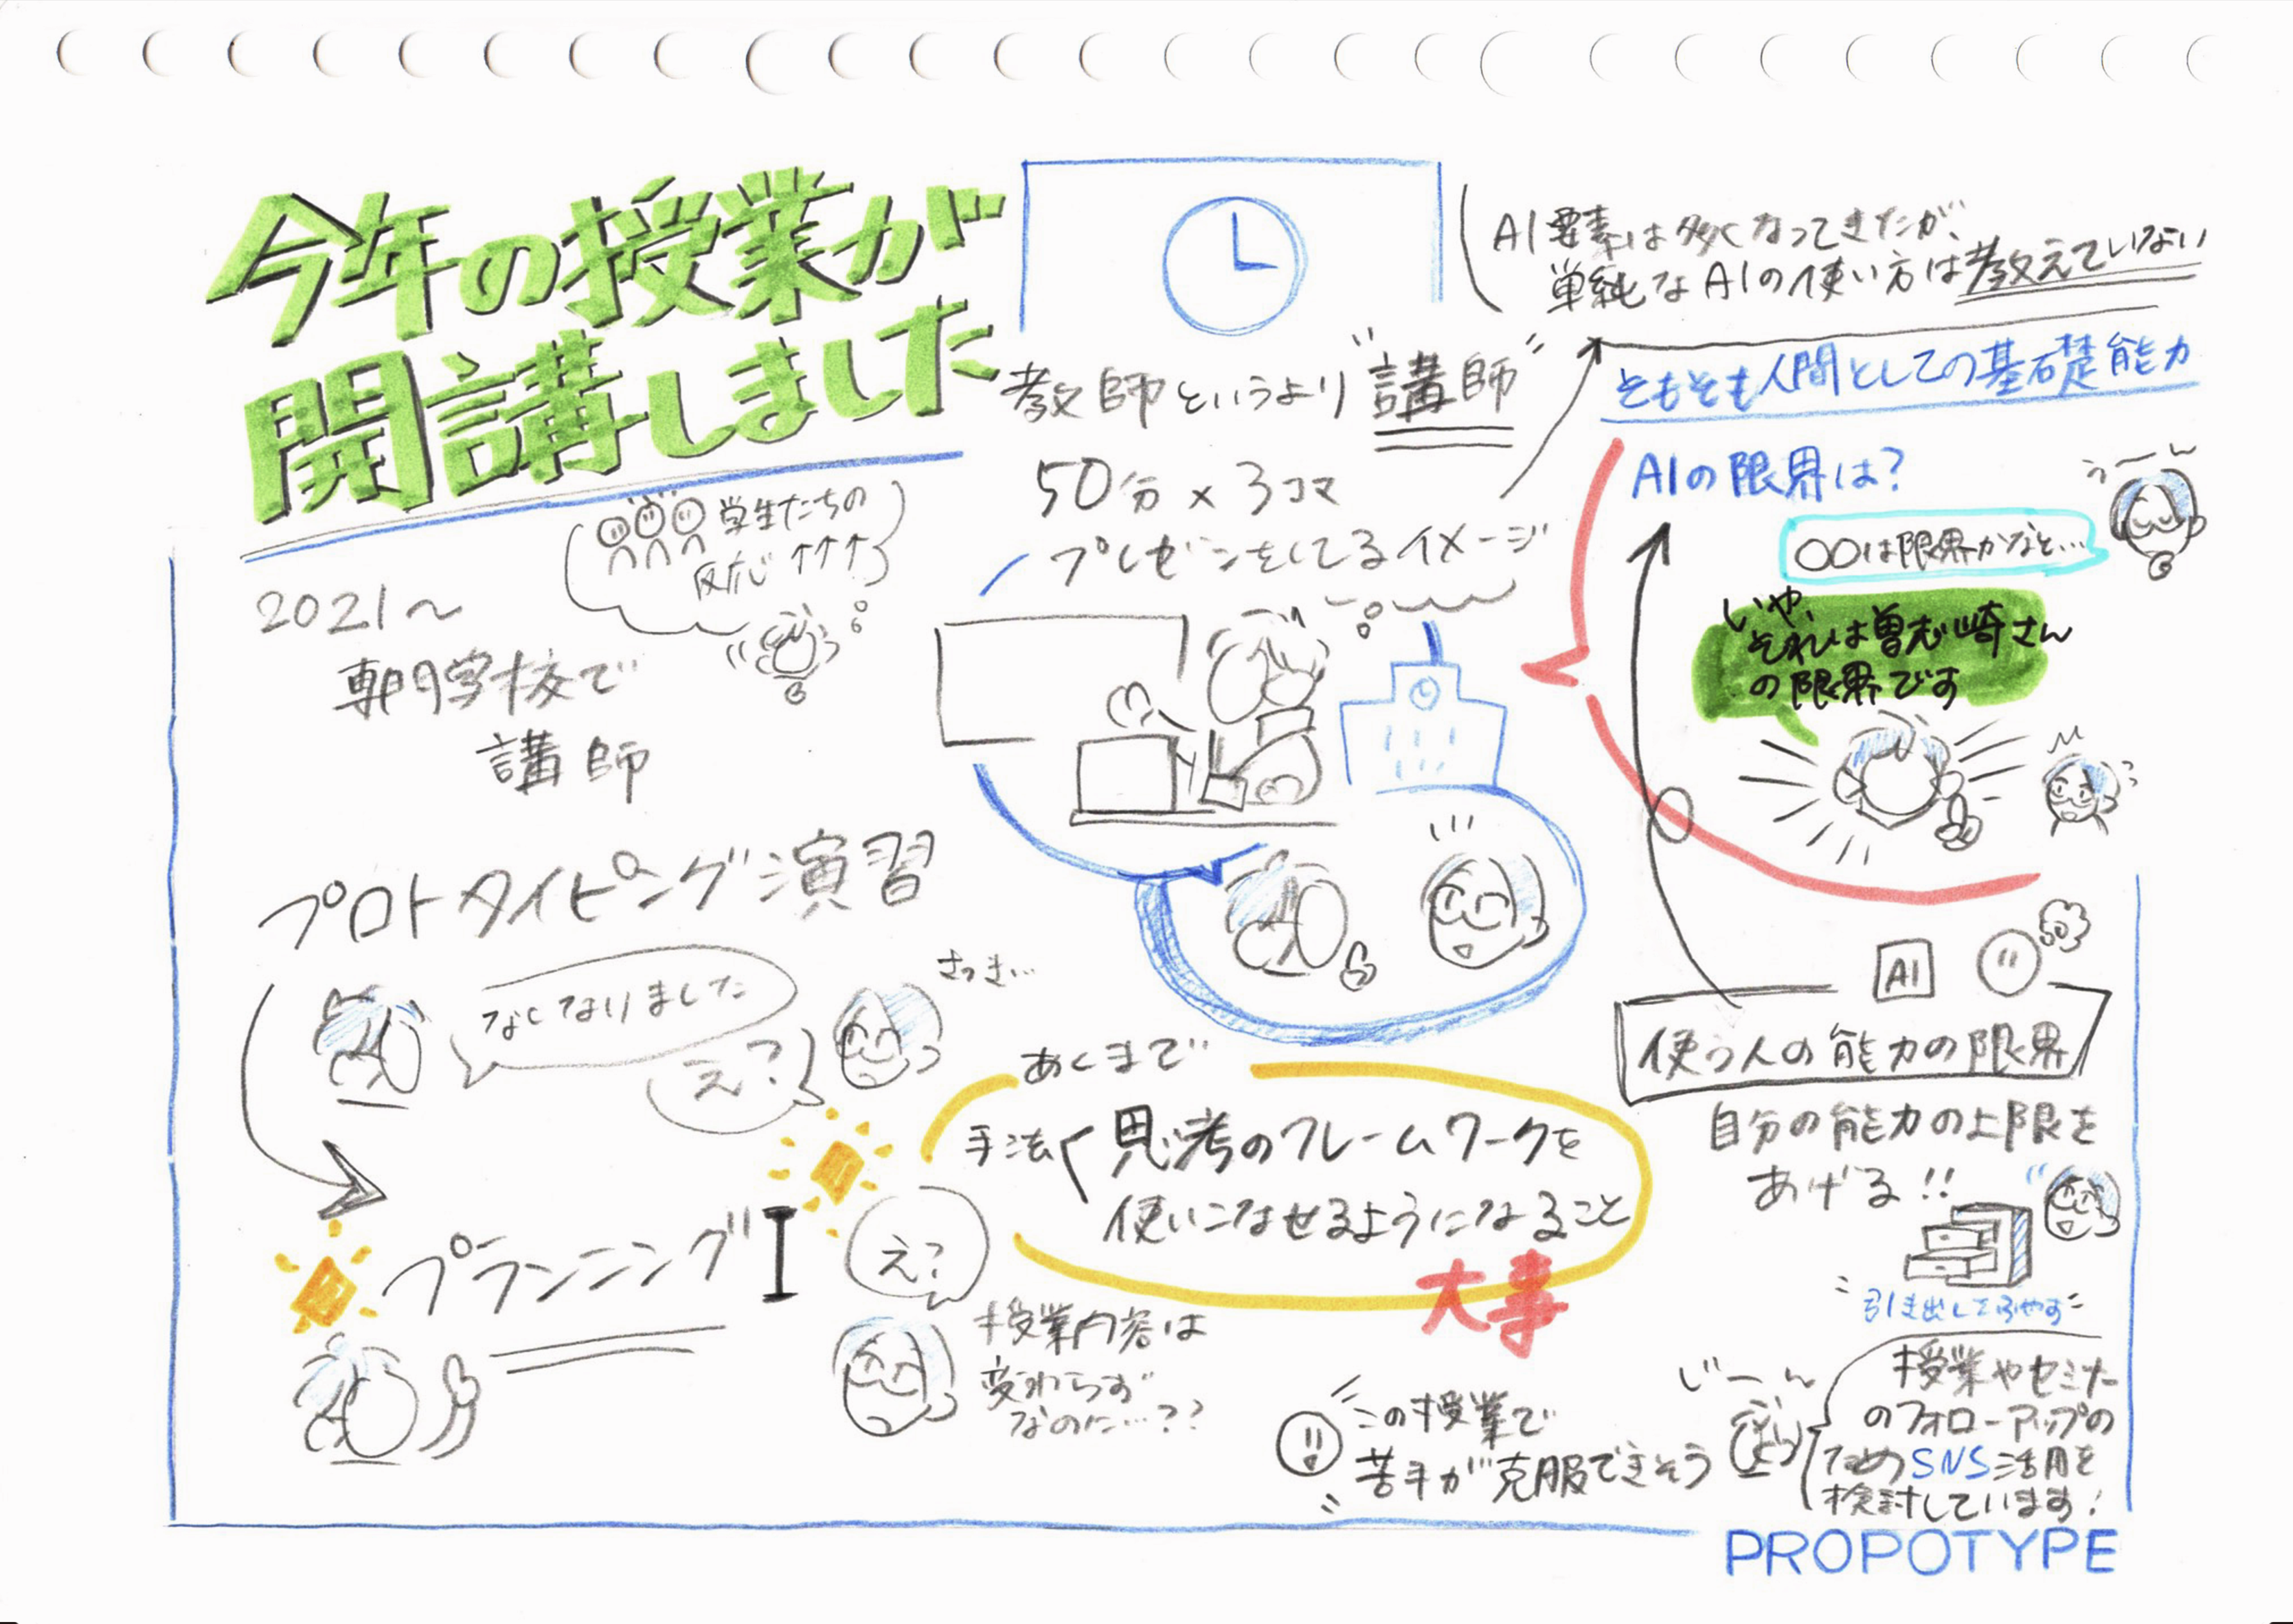 今年の授業が
開講しました
2021〜
専門学校で
講師
学生たちの
反応 ↑↑↑
プロトタイピング演習
なくなりました
え？
さっき…
プランニングI
え？
授業内容は
変わらず
なのに…??
教師というより"講師"
50分×3コマ
プレゼンをしてるイメージ
あくまで
手法
思考のフレームワークを
使いこなせるようになること
大事
この授業で
苦手が克服できそう
AI要素は多くなってきたが、
単純なAIの使い方は教えていない
そもそも人間としての基礎能力
AIの限界は？
うーん
〇〇は限界かなと…
いや、
それは曽志崎さん
の限界です
AI
使う人の能力の限界
自分の能力の上限を
あげる!!
引き出しをふやす
じーん
授業やセミナー
のフォローアップの
ためSNS活用を
検討しています！
PROPOTYPE